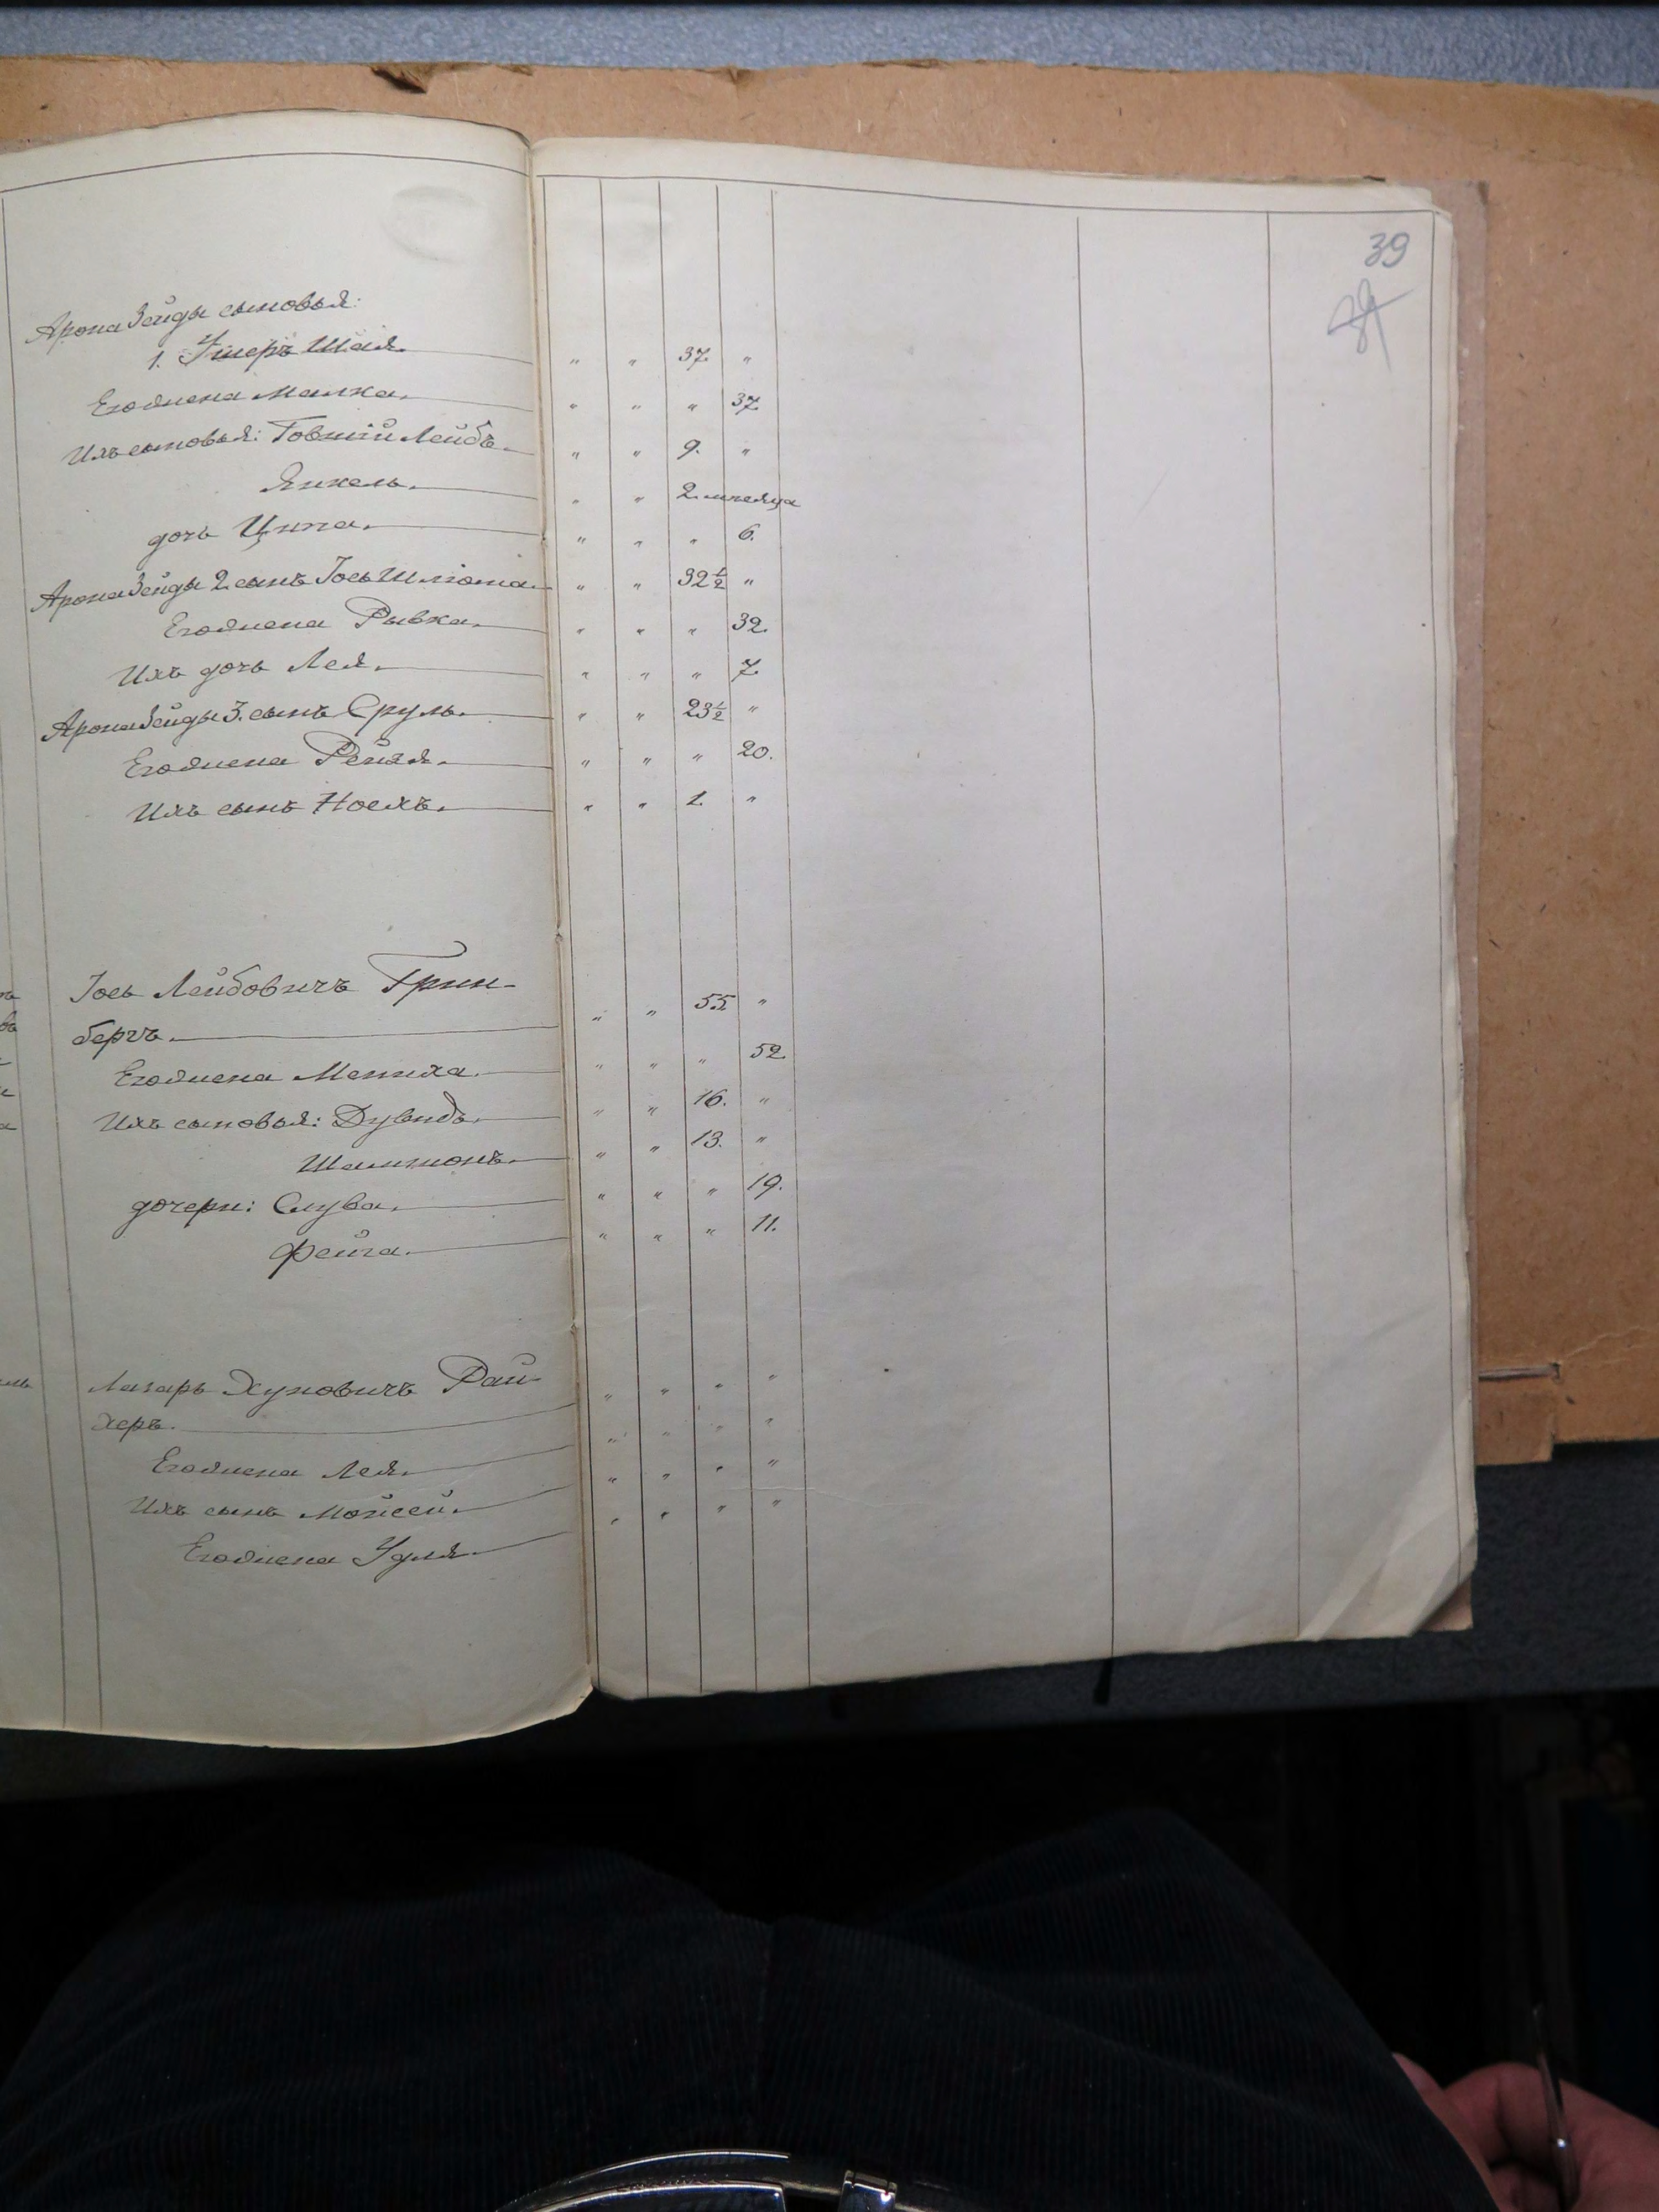 39
Арона Зейды сыновья:
1. Ушеръ Шая. " " 37. "
Его жена Малка. " " " 37.
Ихъ сыновья: Говшій Лейбъ. " " 9. "
Янкель. " " 2. месяца
дочь Ципа. " " " 6.
Арона Зейды 2. сынъ Іось Шлюма. " " 32½ "
Его жена Рывка. " " " 32.
Ихъ дочь Лея. " " " 7.
Арона Зейды 3. сынъ Сруль. " " 23½ "
Его жена Рейзя. " " " 20.
Ихъ сынъ Ноехъ. " " 1. "
Іось Лейбовичъ Грин-
бергъ. " " 55. "
Его жена Мениха. " " " 52.
Ихъ сыновья: Дувидъ. " " 16. "
Шамшонъ. " " 13. "
дочери: Слува. " " " 19.
Фейга. " " " 11.
Лазарь Хуновичъ Рай-
херъ. " " " "
Его жена Лея. " " " "
Ихъ сынъ Мойсей. " " " "
Его жена Удля. " " " "